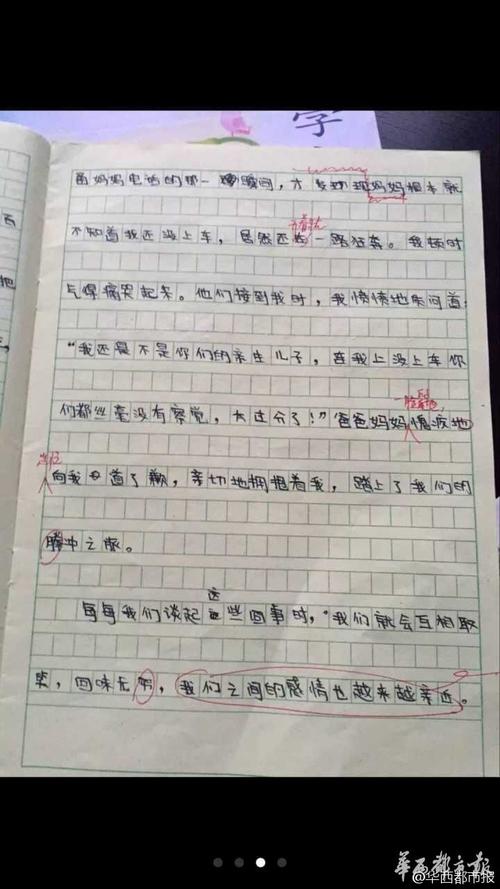 学
西
把
函妈妈电话的那一瞬间，才发现现妈妈根本就
开着车
不知道我还没上车，居然还在一路狂奔。我顿时
气得痛哭起来。他们接到我时，我愤愤地质问道：
“我还是不是你们的亲生儿子，连我上没上车你
一脸
们都丝毫没有察觉，太过分了！”爸爸妈妈愧疚地
向我道了歉，亲切地拥抱着我，踏上了我们的
腾冲之旅。
这
每每我们谈起这些回事时，“我们就会互相取
笑，回味无穷，我们之间的感情也越来越亲近。
华西都市报
@华西都市报